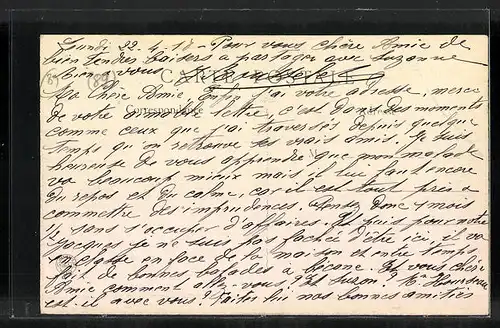 Lundi 22-4-18 - Pour vous chère Amie de
bien tendres baisers à partager avec Suzanne
vous
(81) (89) CARTE POSTALE
Ma Chère Amie Enfin j'ai votre adresse, merci
Correspondance
de votre aimable lettre, c'est dans des moments
comme ceux que j'ai traversés depuis quelque
temps qu'on retrouve ses vrais amis. Je suis
heureuse de vous apprendre que mon malade
va beaucoup mieux mais il lui faut encore
du repos et du calme, car il est tout prêt à
commettre des imprudences. Pensez Donc 1 mois
½ sans s'occuper d'affaires. Et puis pour notre
Jacques je ne suis pas fachée d'être ici, il va
en classe en face de la maison et entre temps
fait de bonnes balades à bécane. Et vous chère
Amie comment allez-vous? Et Suzon? Mr
est-il avec vous? Faites lui nos bonnes amitiés